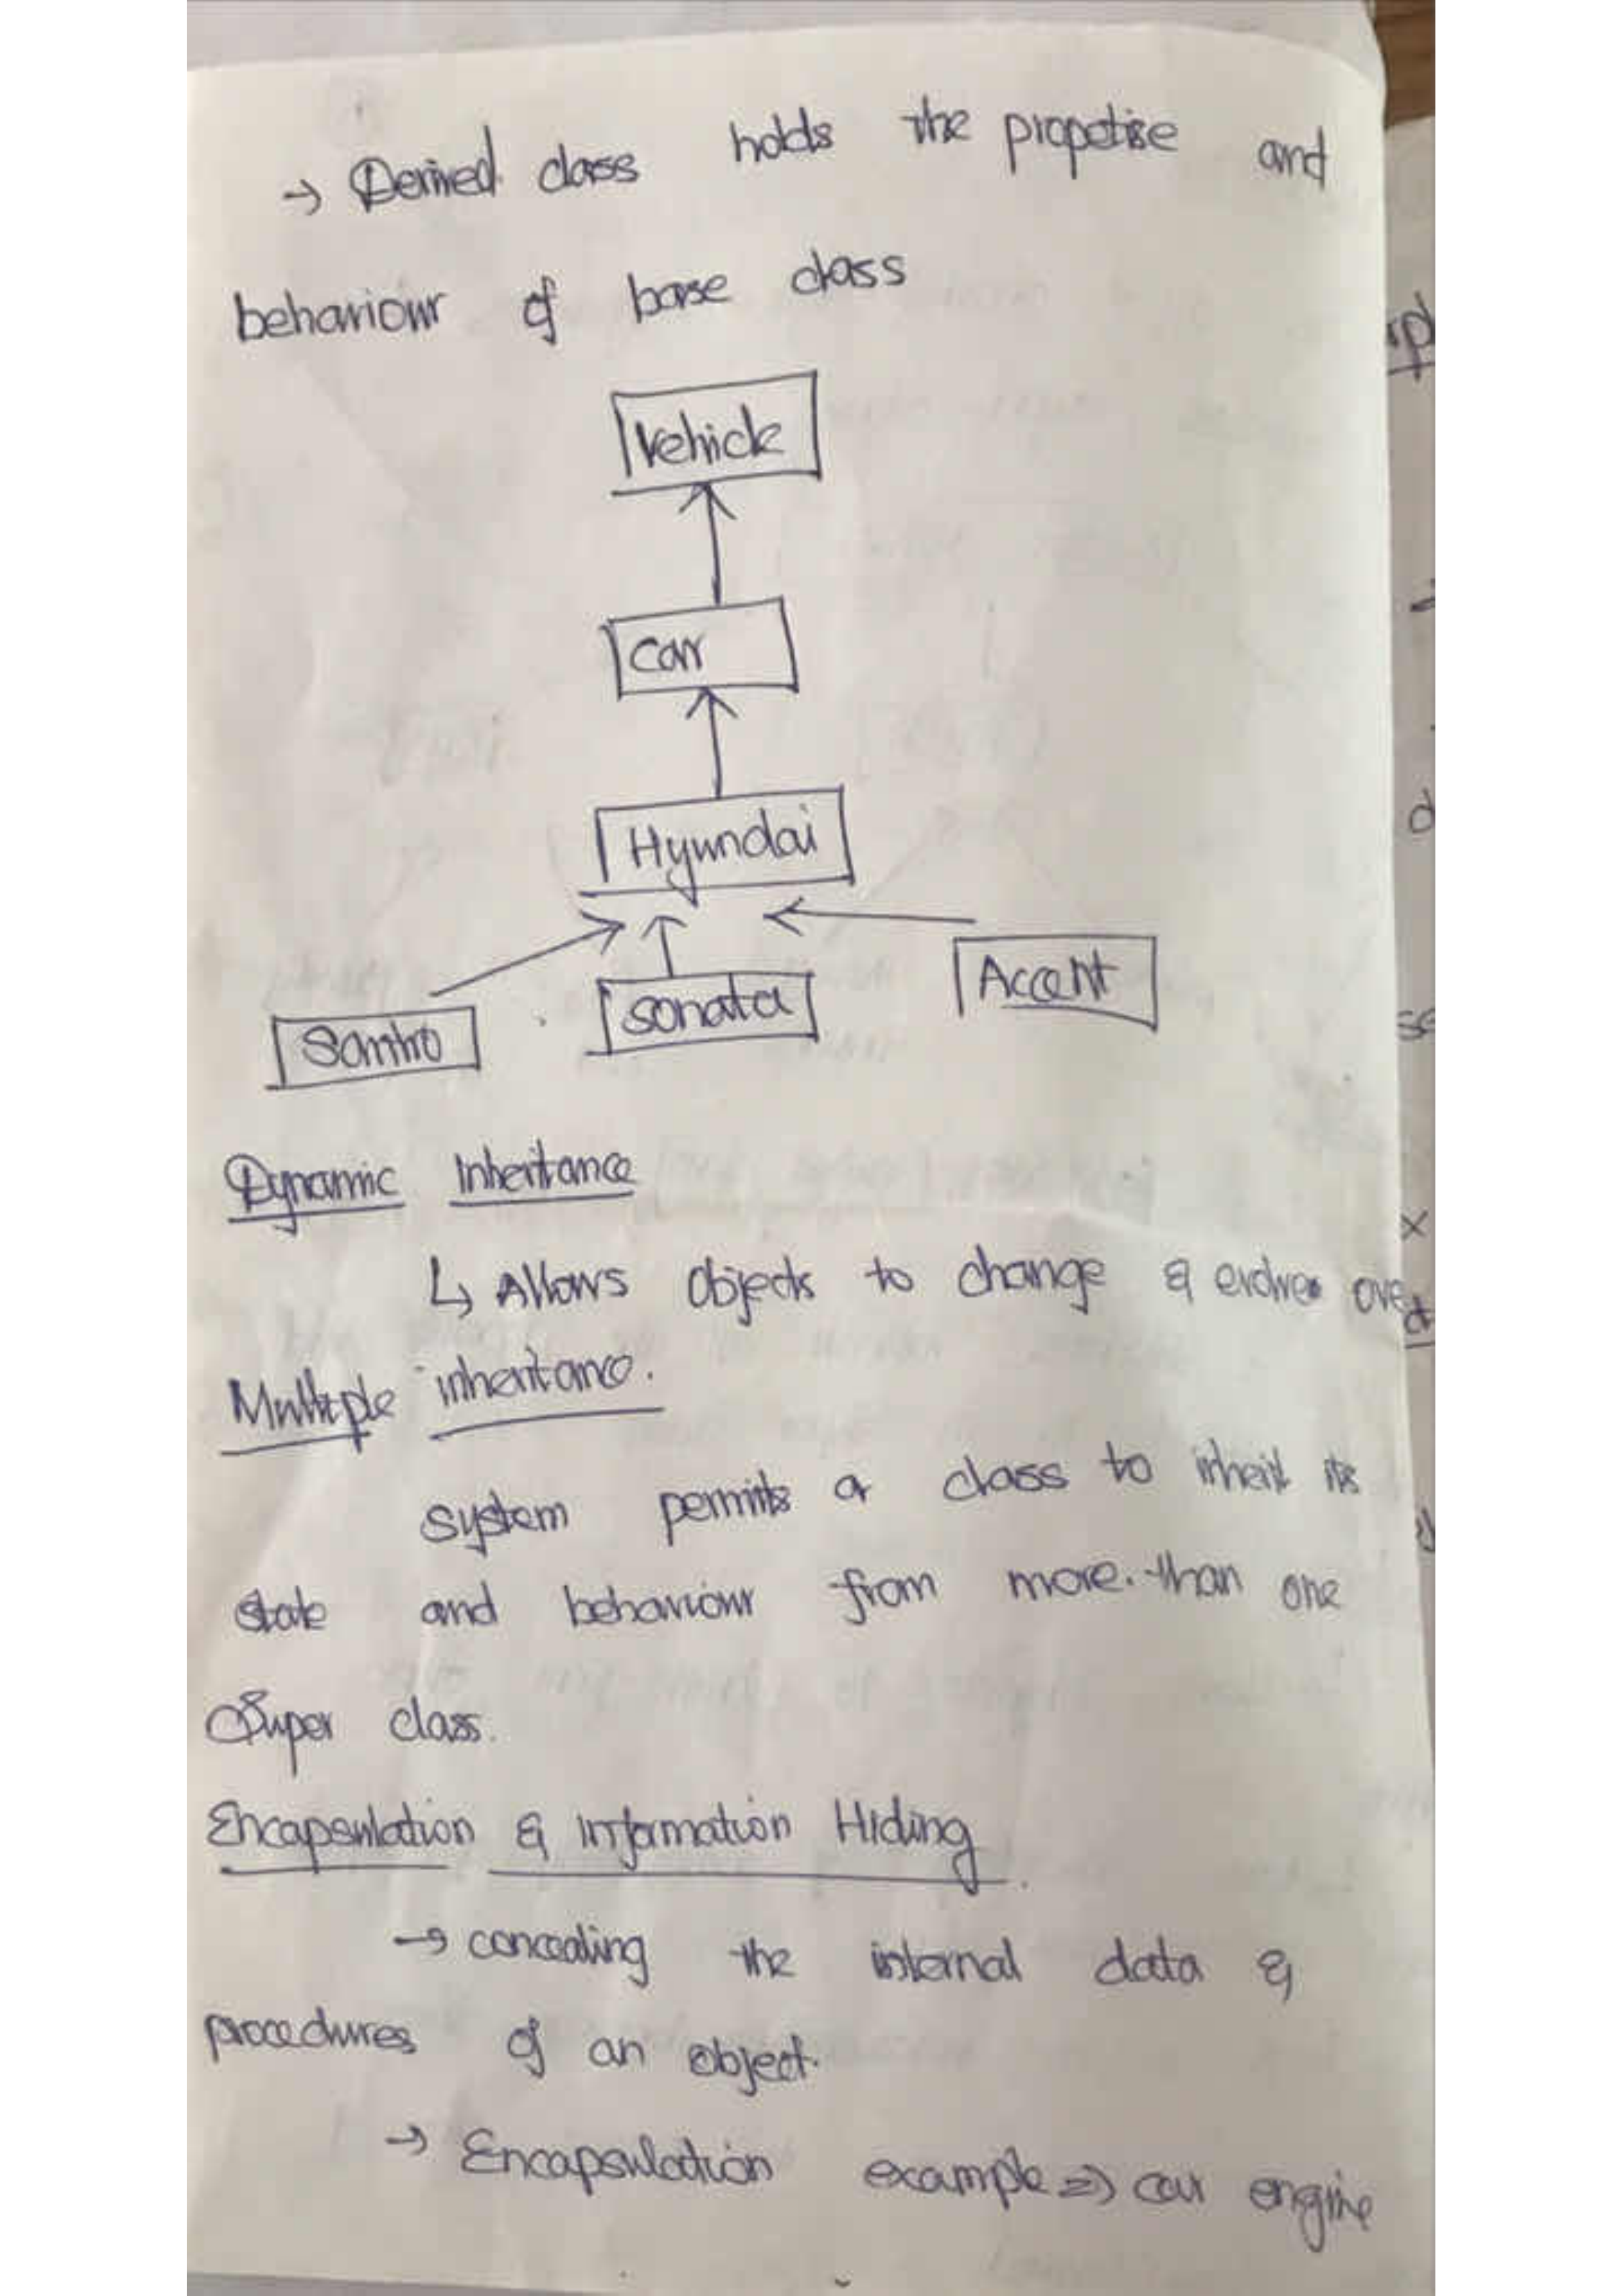 → Derived class holds the propetise and
behaviour of base class
Vehicle
Car
Hyundai
Santro
Sonata
Accent
Dynamic Inheritance
↳ Allows Objects to change & evolve over
Multiple inheritance.
system permits a class to inherit its
state and behaviour from more than one
Super class.
Encapsulation & information Hiding
→ concealing the internal data &
procedures of an object.
→ Encapsulation example ⇒ car engine